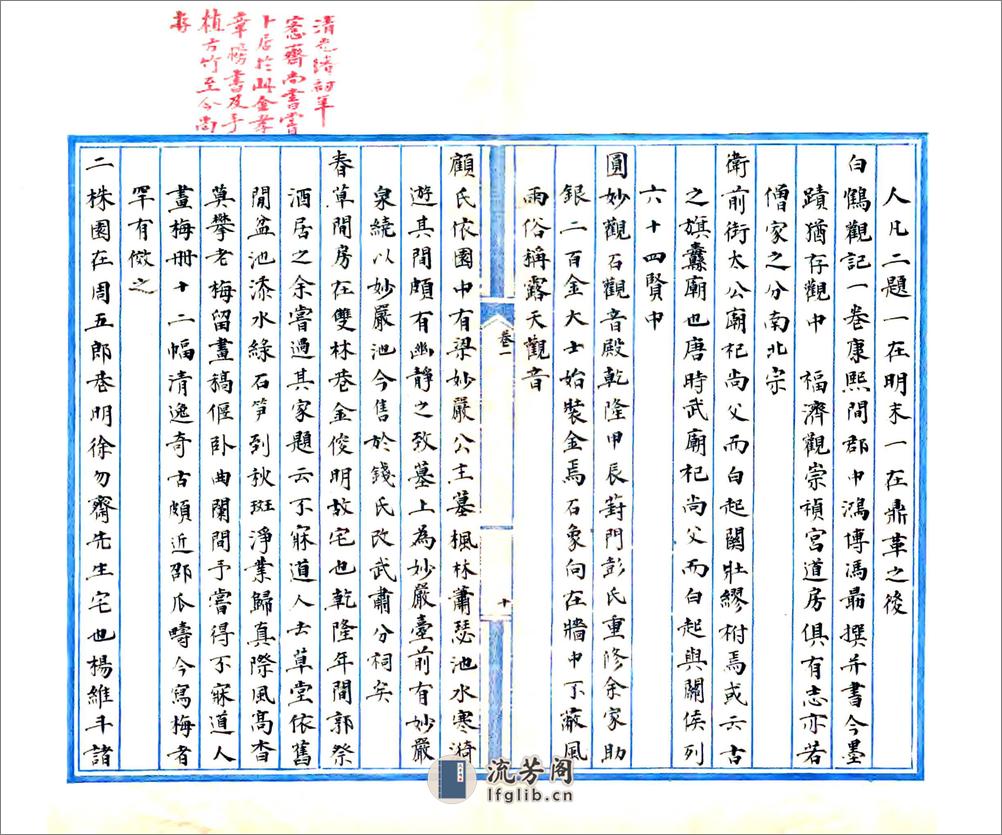 清光緒初年
愙齋尚書嘗
卜居於此金孝
章牓書及手
植方竹至今尚
存
人凡二題一在明末一在鼎革之後
白鶴觀記一卷康熙間郡中鴻博馮勗撰并書今墨
蹟猶存觀中　福濟觀崇禎宮道房俱有志亦若
僧家之分南北宗
衛前街太公廟祀尚父而白起關壯繆柎焉或云古
之旗纛廟也唐時武廟祀尚父而白起與關侯列
六十四賢中
圓妙觀石觀音殿乾隆甲辰葑門彭氏重修余家助
銀二百金大士始裝金焉石象向在牆中不蔽風
雨俗稱露天觀音
卷一
十
顧氏依園中有梁妙嚴公主墓楓林蕭瑟池水寒漪
遊其間頗有幽靜之致墓上為妙嚴臺前有妙嚴
泉繞以妙嚴池今售於錢氏改武肅分祠矣
春草閒房在雙林巷金俊明故宅也乾隆年間郭祭
酒居之余嘗過其家題云不寐道人去草堂依舊
閒盆池漆水綠石笋列秋斑淨業歸真際風高杳
莫攀老梅留畫稿偃臥曲闌間予嘗得不寐道人
畫梅冊十二幅清逸奇古頗近邵瓜疇今寫梅者
罕有倣之
二株園在周五郎巷明徐勿齋先生宅也楊維斗諸
流芳阁
lfglib.cn